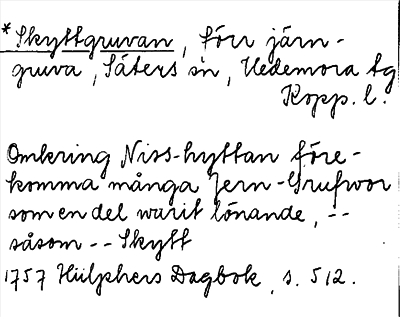 *Skyttgruvan, förr järn-
gruva, Säters sn, Hedemora tg
Kopp. l.
Omkring Niss-hyttan före-
komma många Jern-Grufwor
som en del warit lönande, --
såsom -- Skytt
1757 Hülphers Dagbok, s. 512.